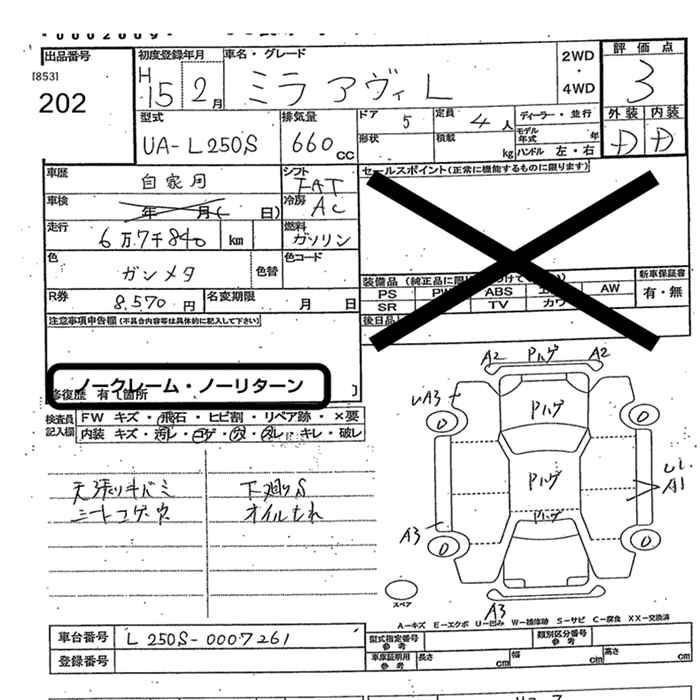 出品番号 初度登録年月 車名・グレード 2WD・4WD 評価点
[853] H15 2月 ミラ アヴィ L 3
202 型式 排気量 ドア 5 定員 4人 ディーラー・並行 外装 内装
UA-L250S 660cc 形状 積載 kg モデル年式 年 ハンドル 左・右 D D
車歴 自家用 シフト FAT セールスポイント(正常に機能するものに限ります)
車検 年 月( 日) 冷房 AC
走行 6万7千840 km 燃料 ガソリン
色 ガンメタ 色替 色コード
装備品(純正品に限 けて 新車保証書
PS PW ABS エ AW 有・無
R券 8,570円 名変期限 月 日 SR TV カワ
注意事項申告欄(不具合内容等は具体的に記入して下さい) 後日品
ノークレーム・ノーリターン
修復歴 有 箇所
検査員記入欄 FW キズ・飛石・ヒビ割・リペア跡・×要
内装 キズ・汚レ・コゲ・穴・スレ・キレ・破レ
A2 Pハゲ A2
UA3 Pハゲ
0 0
天張りキバミ 下廻りS Pハゲ
シートコゲ穴 オイルもれ Pハゲ A1
A3 0 0
スペア A3
A-キズ E-エクボ U-凹み W-補修跡 S-サビ C-腐食 XX-交換済
車台番号 L250S-0007261 型式指定番号 参考 類別区分番号 参考
登録番号 車庫証明用 参考 長さ cm 幅 cm 高さ cm